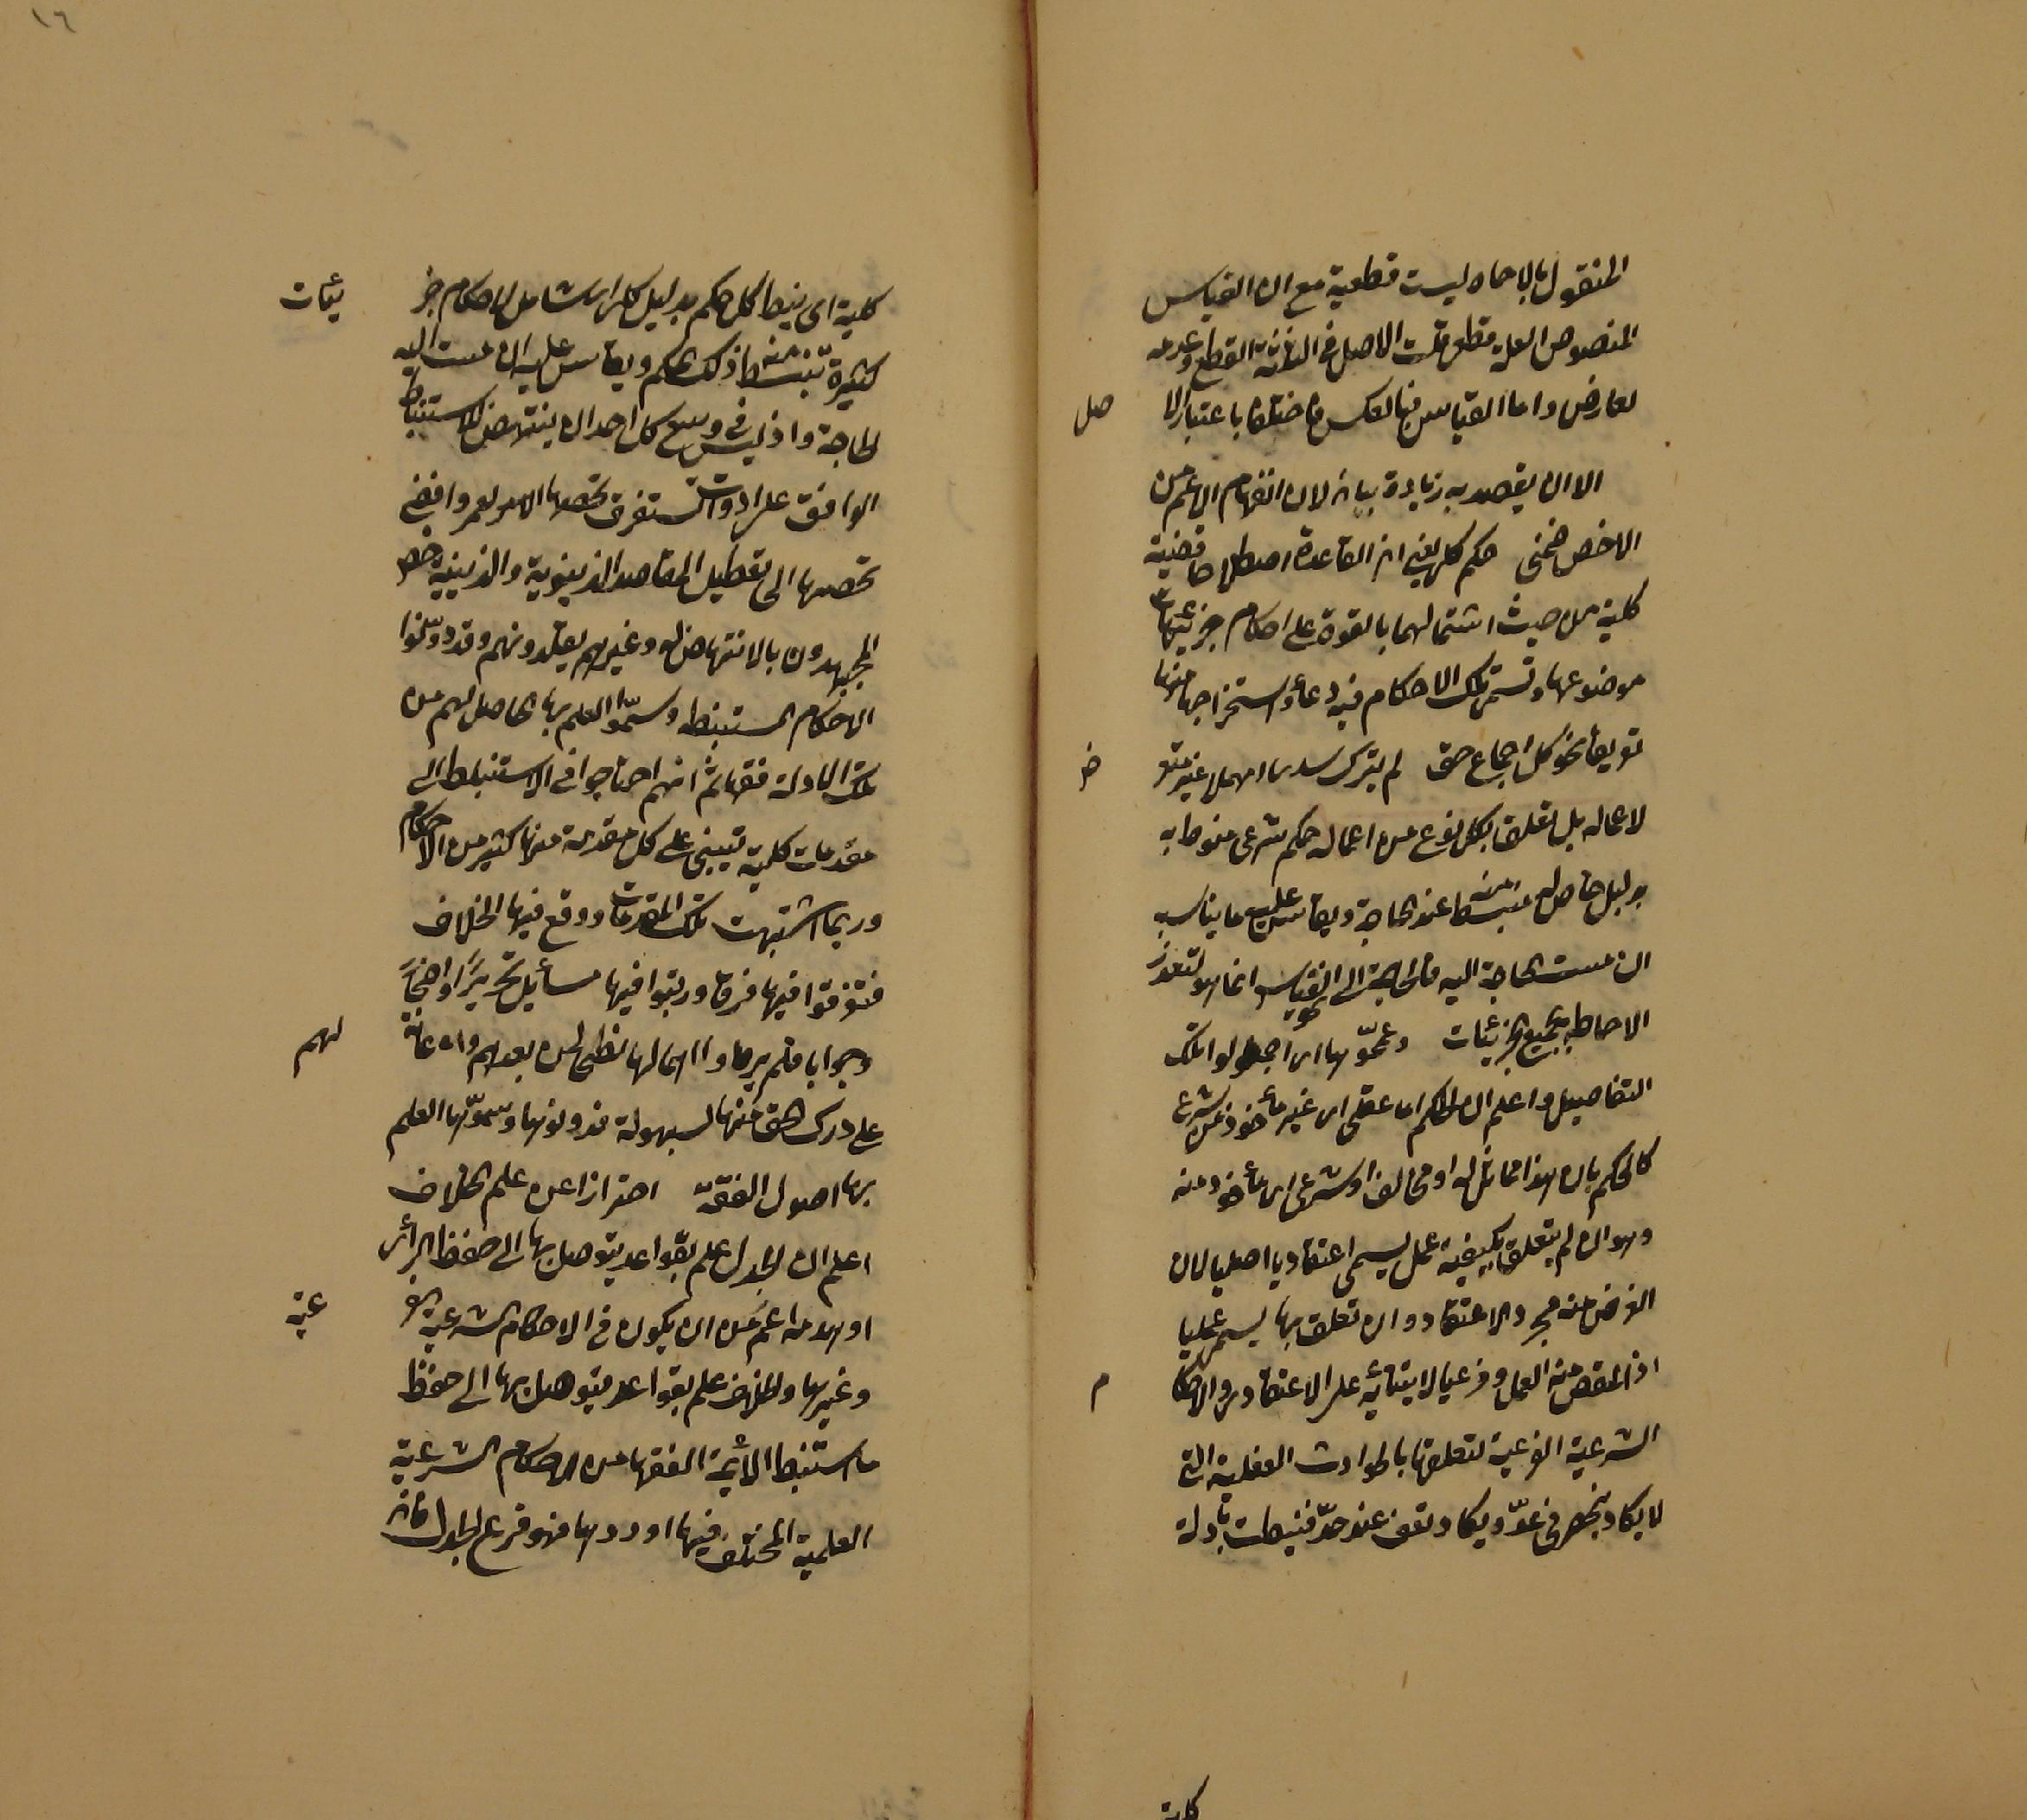 المنقول بالاحاد ليست قطعية مع ان القياس
المنصوص العلة قطعى قلت الاصل فى القطع وعدمه
لعارض واما القياس فبالعكس فاختلفا باعتبار الا صل
الا ان يقصد به زيادة بيان لان انفهام الاعم من
الاخص ضمنى حكم كلى يعنى ان القاعدة اصطلاحا قضية
كلية من حيث اشتمالها بالقوة على احكام جزئيات
موضوعها وتسمى تلك الاحكام فروعا واستخراجها منها
تفريعا نحو كل اجماع حق لم يترك سدى اى مهملا غير متعر ض
لاعماله بل تعلق بكل نوع من اعماله حكم شرعى منوط به
بدليل خاص ليستنبط منه عند الحاجة ويقاس عليه ما يناسبه
ان مست الحاجة اليه فالحاجة الى القياس انما هو لتعذر
الاحاطة بجميع الجزئيات وعمموها اى اجملوا تلك
التفاصيل واعلم ان الحكم اما عقلى اى غير مأخوذ من شرع
كالحكم بان هذا مماثل له او مخالف او شرعى اى مأخوذ منه
وهو ان لم يتعلق بكيفية عمل يسمى اعتقاديا اصليا لان
الغرض منه مجرد الاعتقاد وان تعلق بها يسمى عمليا
اذ المقصود منه العمل وفرعيا لابتنائه على الاعتقادى والاحكا م
الشرعية الفرعية لتعلقها بالحوادث الفعلية التى
لا يكاد ينحصر فى عدّ ويكاد تقف عند حدّ فنيطت بادلة
كلية
١٦
كلية اى ينيط كل حكم بدليل كلى اى شامل لاحكام جز ئيات
كثيرة تستنبط منه اذ ذلك الحكم ويقاس عليه ان مست اليه
الحاجة واذ ليس فى وسع كل احد ان ينتهض للاستنباط
لتوقفه على ادوات تستغرق تحصيلها العمر وافضى
تحصيلها الى تعطيل المقاصد الدنيوية والدينية خص
المجتهدون بالانتهاض له وغيرهم يقلدونهم وقد دونوا
الاحكام المستنبطه وسمّوا العلم بها الحاصل لهم من
تلك الادلة فقها ثم انهم احتاجوا فى الاستنباط الى
مقدمات كلية تبتنى على كل مقدمة منها كثير من الاحكام
وربما اشتبهت تلك المقدمات ووقع فيها الخلاف
فتفرقوا فيها فرقا ورتبوا فيها مسائل تحريرًا واحتجاجًا
وجوابا فلم يروا اهمالها نصحا لمن بعدهم واعانة لهم
على درك الحق منها بسهولة فدونوها وسموّا العلم
بها اصول الفقه احترازا عن علم الخلاف
اعلم ان الجدل علم بقواعد يتوصل بها الى حفظ الرأى
او هدمه اعم من ان يكون فى الاحكام الشرعية الفر عية
وغيرها والخلاف علم بقواعد يتوصل بها الى حفظ
ما استنبط الأئمة الفقهاء من الاحكام الشرعية
العلمية المختلف فيها او ردها فهو فرع الجدل فانه